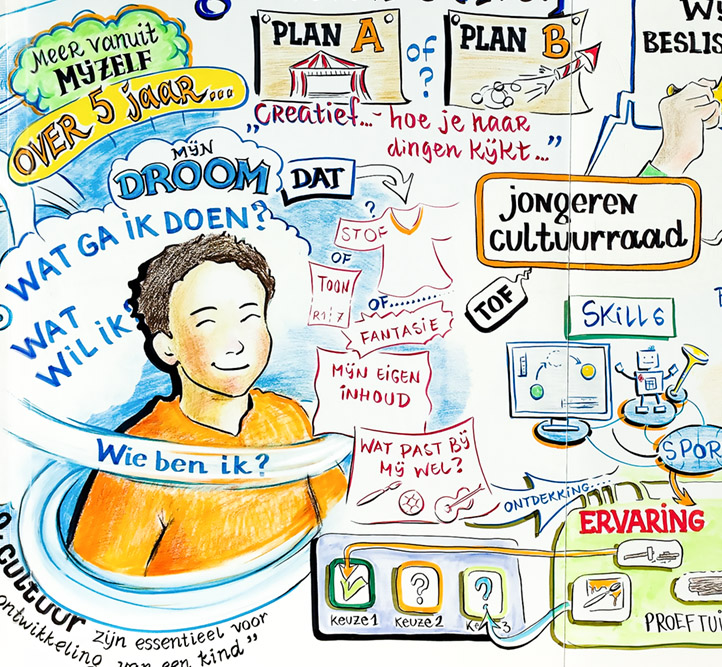 MEER VANUIT
MYZELF
OVER 5 jaar...
PLAN A
OF
?
PLAN B
BESLIS
„Creatief...- hoe je naar
dingen kijkt..."
MIJN
DROOM
DAT
WAT GA IK DOEN?
WAT
WIL IK
Wie ben ik?
?
STOF
OF
TOON
R1:7
OF.........
FANTASIE
MIJN EIGEN
INHOUD
WAT PAST BIJ
MIJ WEL?
jongeren
cultuurraad
TOF
SKILLS
SPOR
ONTDEKKING....
ERVARING
PROEFTUI
Keuze 1
Keuze 2
?
?
cultuur zijn essentieel voor
ontwikkeling van een kind"